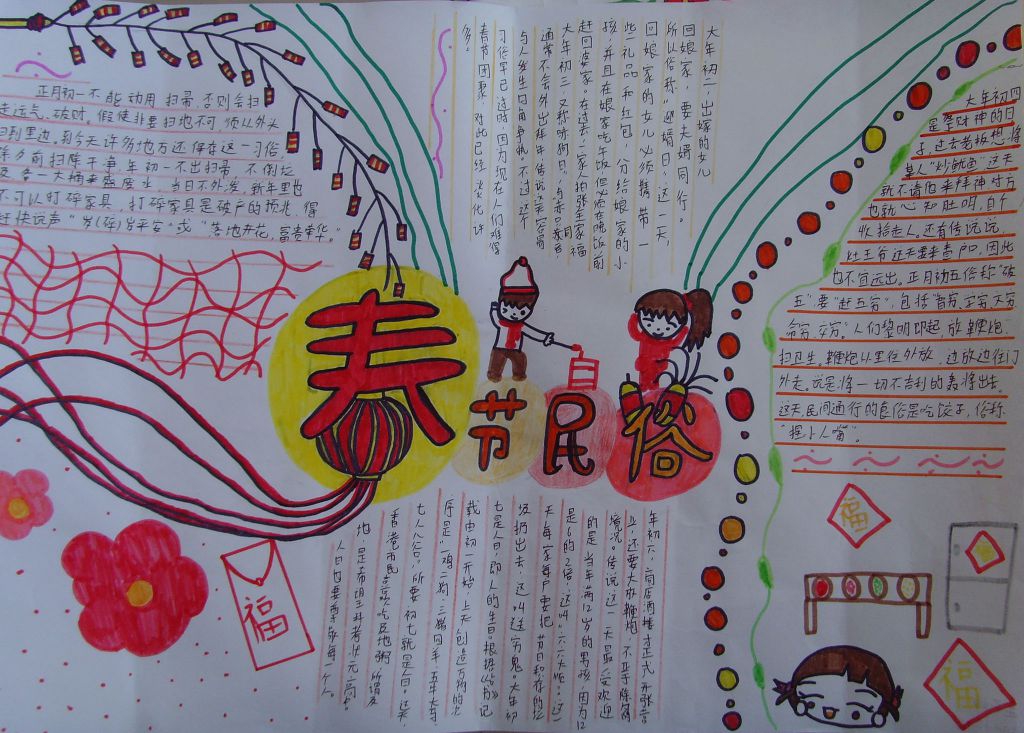 正月初一不能动用扫帚,否则会扫
走运气、破财。假使非要扫地不可,须从外头
扫到里边。到今天许多地方还保存这一习俗,
除夕前扫除干净,年初一不出扫帚,不倒垃
圾,备一大桶来盛废水,当日不外泼。新年里也
不可以打碎家具,打碎家具是破产的预兆,得
赶快说声"岁(碎)岁平安"或"落地开花,富贵荣华。"
大年初二,出嫁的女儿
回娘家,要夫婿同行。
所以俗称"迎婿日"。这一天,
回娘家的女儿必须携带一
些礼品和红包,分给娘家的小
孩,并且在娘家吃午饭,但必须在晚饭前
赶回婆家。在过去,一家人拍张全家福
大年初三,又称赤狗日,与"赤口"同音,
通常不会外出拜年,传说这天容易
与人发生口角争执。不过这个
习俗早已过时,因为现在人们难得
春节团聚,对此已经淡化许
多。
大年初四
是祭财神的日
子,过去老板想将
某人"炒鱿鱼",这天
就不请他来拜神,对方
也就心知肚明,自个
收拾走人。还有传说说,
灶王爷这天要来查户口,因此
也不宜远出。正月初五俗称"破
五",要"赶五穷",包括"智穷、学穷、文穷
命穷、交穷"。人们黎明即起,放鞭炮,
扫卫生。鞭炮从里往外放,边放边往门
外走。说是将一切不吉利的轰将出去。
这天,民间通行的食俗是吃饺子,俗称
"捏小人嘴"。
春节民俗
年初六,商店酒楼才正式开张营
业,还要大放鞭炮,不亚于除夕的
境况。传说这一天最受欢迎
的是当年满12岁的男孩,因为12
是6的2倍,这叫六六大顺。这
天,每一家每户要把节日积存的垃
圾扔出去,这叫送穷鬼。大年初
七是人日,即人的生日。根据《占书》记
载由初一开始,上天创造万物的次
序是一鸡二狗,三猪四羊,五牛六马,
七人八谷,所以初七就是人日。这天
香港市民喜欢吃及地粥,所谓及
地,是帝期王科考状元
人日也要尊敬每一个人。
福
福
福